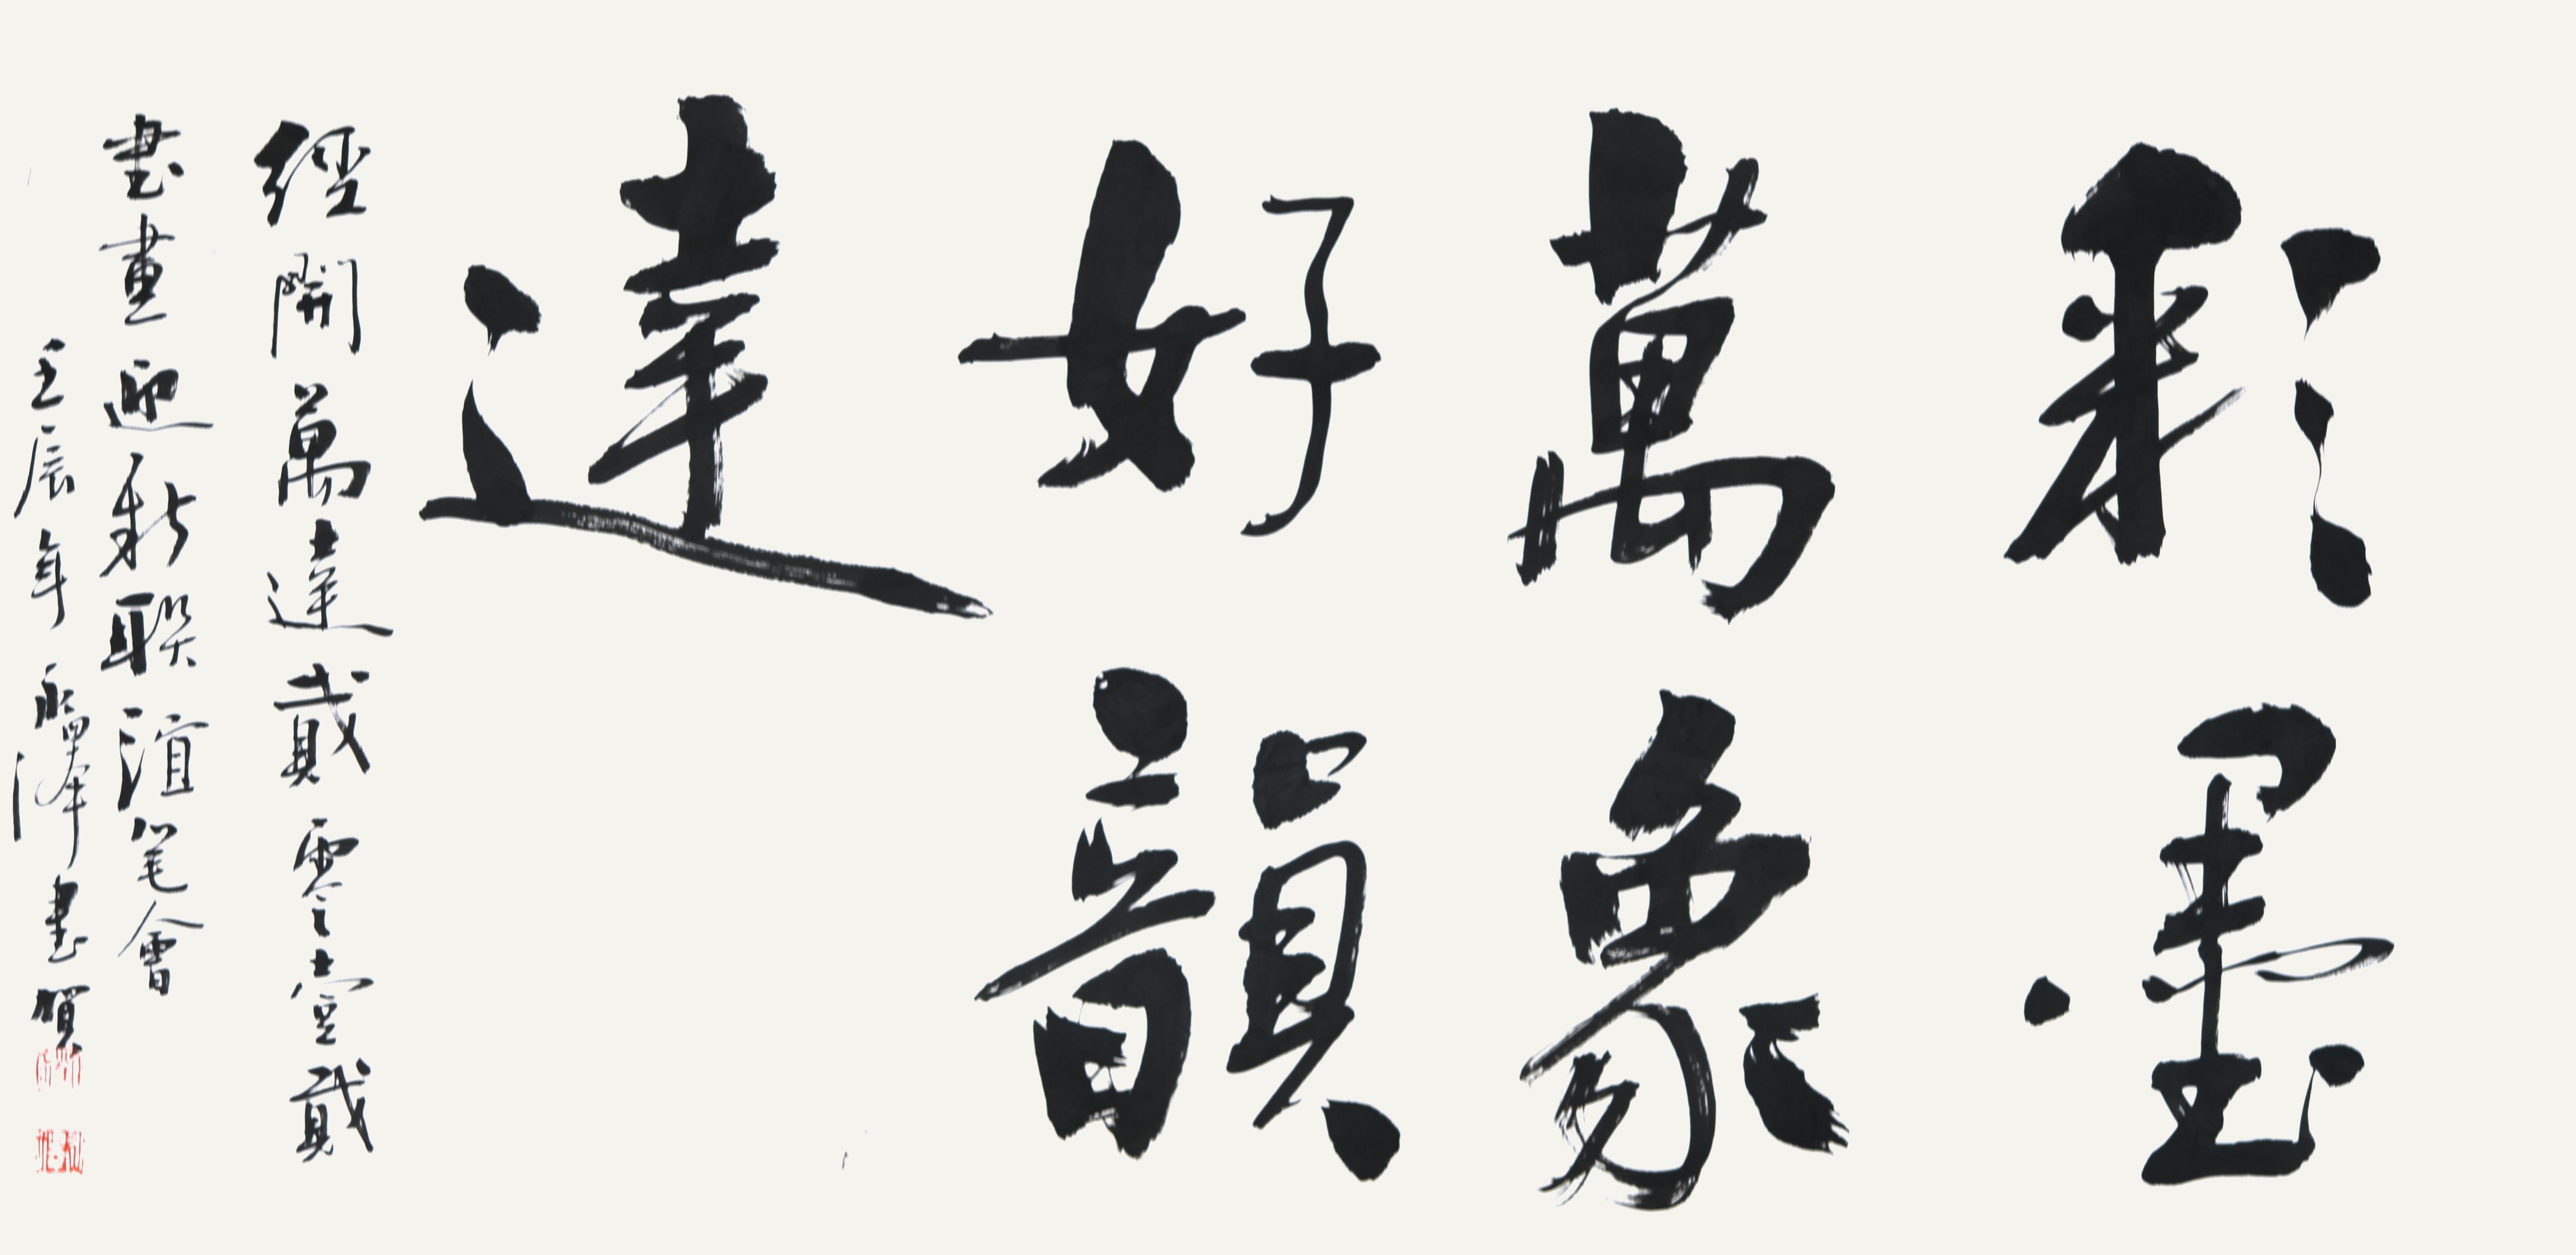 彩墨
萬象
好韻
達
經開萬達藏雲堂藏
書畫迎新聯誼笔會
壬辰年永澤書賀